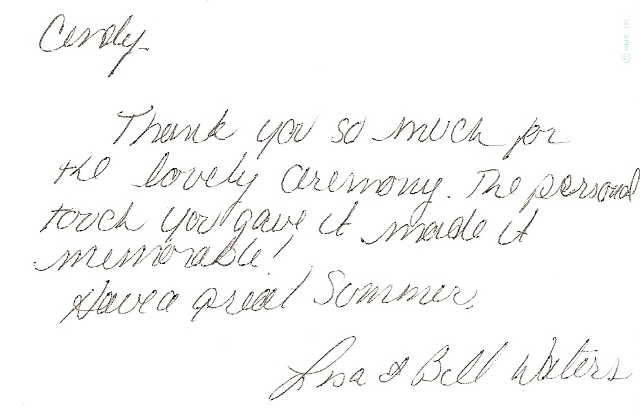 Cindy-
Thank you so much for
the lovely ceremony. The personal
touch you gave it made it
memorable!
Have a great Summer.
Lisa & Bill Waters